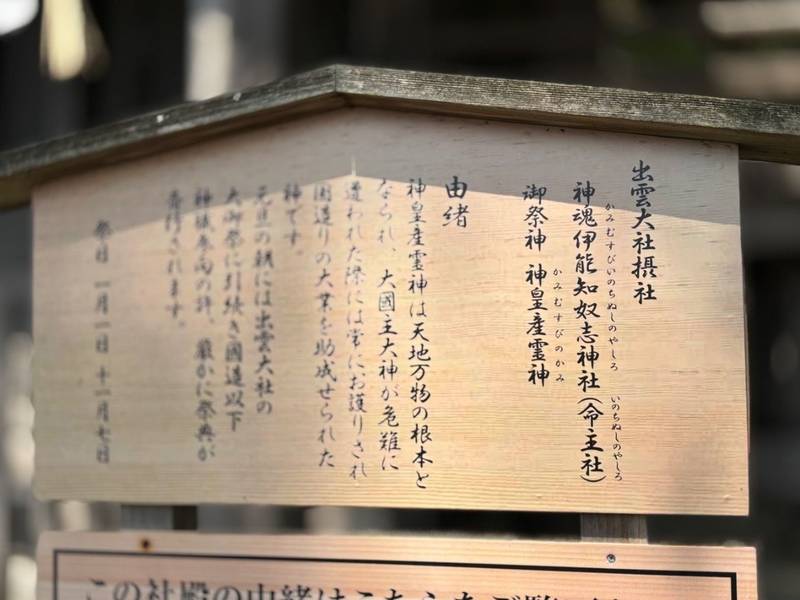 出雲大社摂社
神魂伊能知奴志神社(命主社)
かみむすびいのちぬしのやしろ
いのちぬしのやしろ
御祭神 神皇産霊神
かみむすびのかみ
由緒
神皇産霊神は天地万物の根本と
なられ、大國主大神が危難に
遭われた際には常にお護りされ
国造りの大業を助成せられた
神です。
元旦の朝には出雲大社の
大御祭に引続き國造以下
神職参向の許、厳かに祭典が
斎行されます。
祭日 一月一日 十一月七日
この社殿の由緒はこちらをご覧